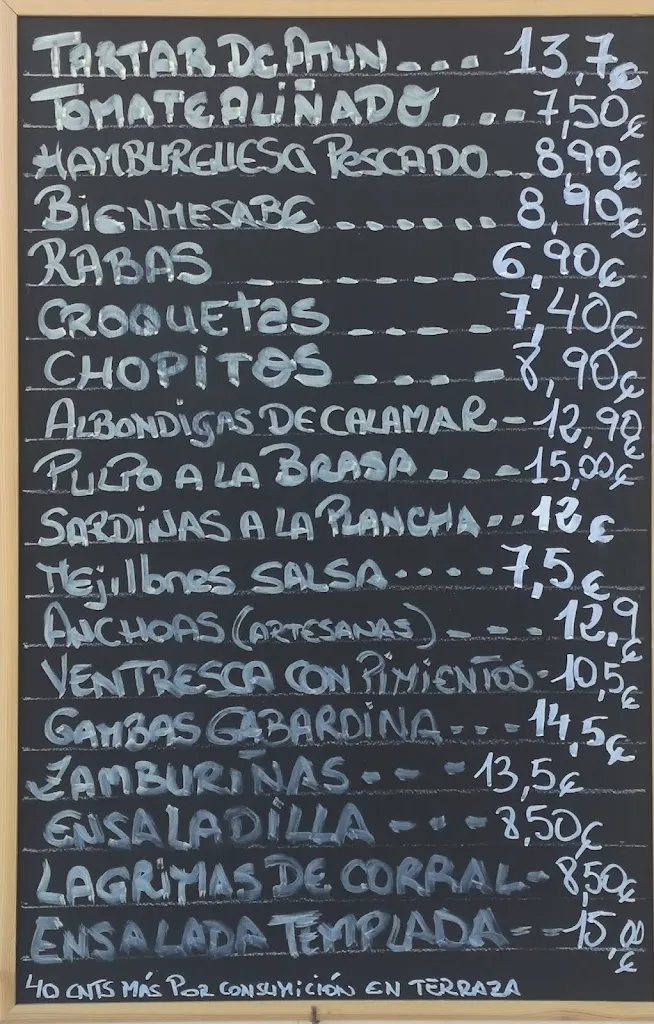 TARTAR DE ATUN---- 13,7€
TOMATE ALIÑADO....7,50€
HAMBURGUESA PESCADO..8,90€
BIENMESABE ...... 8,90€
RABAS ----- 6,90€
CROQUETAS ---- 7,40€
CHOPITOS ---- 8,90€
ALBONDIGAS DE CALAMAR-12,90
PULPO A LA BRASA...-15,00€
SARDINAS A LA PLANCHA..12€
Mejillones SALSA....7,5€
ANCHOAS (ARTESANAS)--- 12,9€
VENTRESCA CON PIMIENTOS-10,5€
GAMBAS GABARDINA---14,5€
ZAMBURIÑAS ---13,5€
ENSALADILLA ---8,50€
LAGRIMAS DE CORRAL-8,50€
ENSALADA TEMPLADA--15,00€
40 CNTS MÁS POR CONSUMICIÓN EN TERRAZA